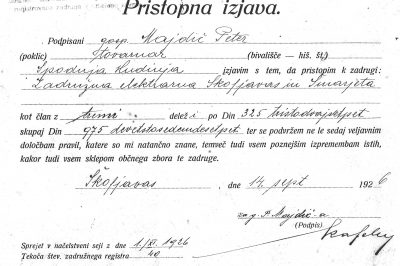 Pristopna izjava.
Podpisani gosp. Majdič Peter
(poklic) tovarnar (bivališče — hiš. št.)
Spodnja Hudinja izjavim s tem, da pristopim k zadrugi:
Zadružna elektrarna Škofjavas in Šmarjeta
kot član z tremi deleži po Din 325 tristodvajsetpet
skupaj Din 975 devetstosedemdesetpet ter se podvržem ne le sedaj veljavnim
določbam pravil, katere so mi natančno znane, temveč tudi vsem poznejšim izpremembam istih,
kakor tudi vsem sklepom občnega zbora te zadruge.
Škofjavas, dne 14. sept 1926
za g. P. Majdič-a
(Podpis)
Sprejet v načelstveni seji z dne 1/XI. 1926
Tekoča štev. zadružnega registra 40